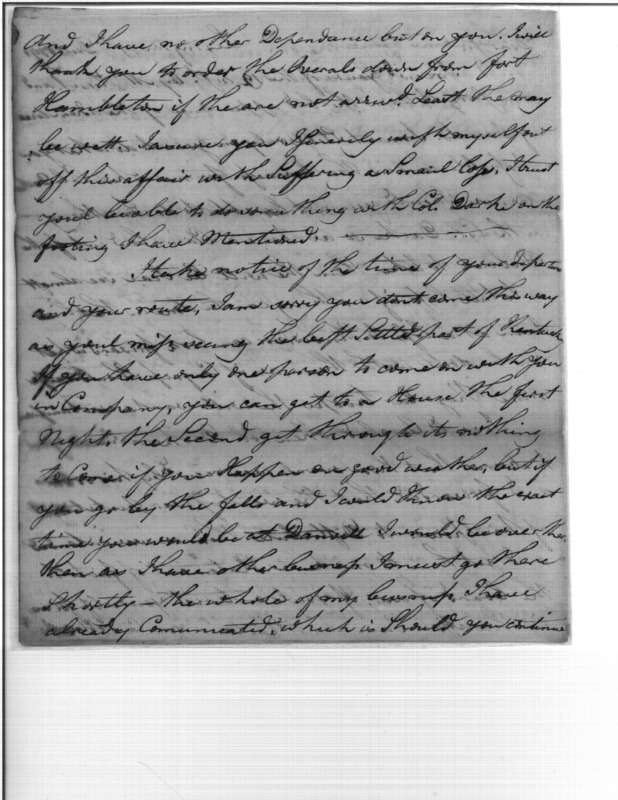 And I have no other Dependance but on you. I will
thank you to order the Overals down from fort
Hambleton if the are not arivd. Least the may
be wett. I assure you I Sincerily wish myself out
off this affair with Suffering a Small Loss, I trust
youl be able to do something with Col. Darke on the
footing I have Mentioned.
I take notice of the time of your
and your route, I am sorry you dont come this way
as youl miss seeing the best Settled part of Kentuck
If you have only one person to come on with you
in Company, you can get to a House the first
Night, the Second get through its nothing
to Come if you Happen on good weather, but if
you go by the falls and I could Know the exact
time you would be at Danvill I would be over
then as I have other business I must go there
Shortly — the whole of my business I have
already Comunicated, which is Should you continue